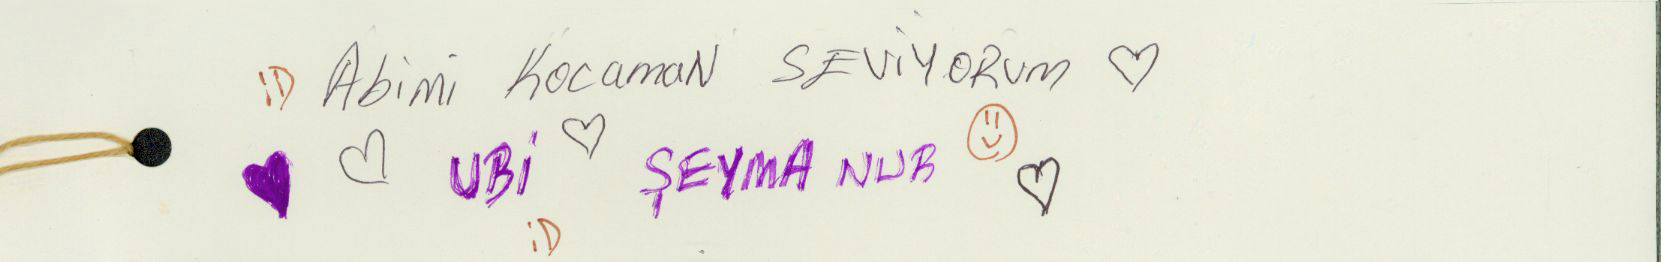 :D Abimi Kocaman SEViYORUM ♡
♥ ♡ UBi ♡ ŞEYMA NUR
:D